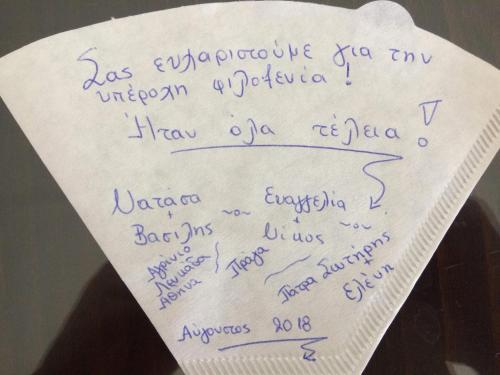 Σας ευχαριστούμε για την
υπέροχη φιλοξενία!
Ήταν όλα τέλεια!
Νατάσα
+
Βασίλης
Αγρίνιο
Λευκάδα
Αθήνα
Ευαγγελία
+
Νίκος
Πράγα
Πάτρα
Σωτήρης
+
Ελένη
Αύγουστος 2018